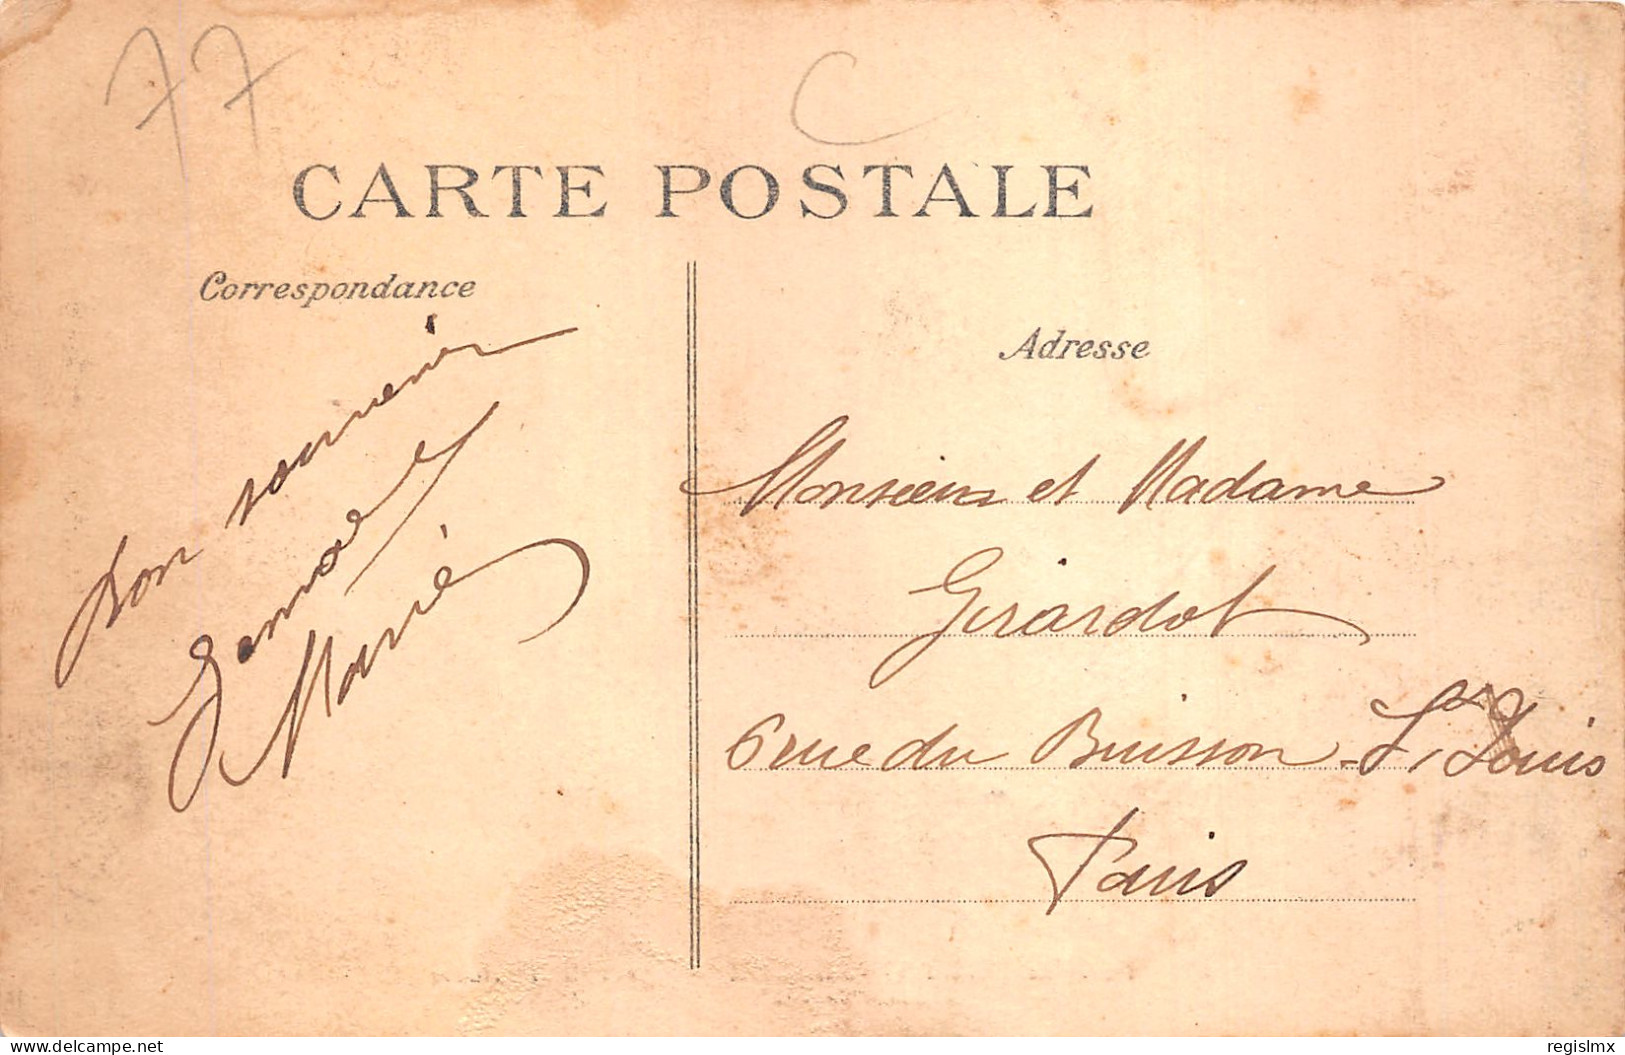 77
C
CARTE POSTALE
Correspondance
Adresse
Bon souvenir
Marié
Monsieur et Madame
Girardot
6 rue du Buisson - St Louis
Paris
www.delcampe.net
regislmx